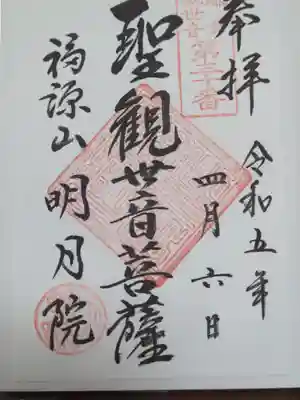 奉拝
令和五年
四月六日
第三十番
聖観世音菩薩
福源山
明月院